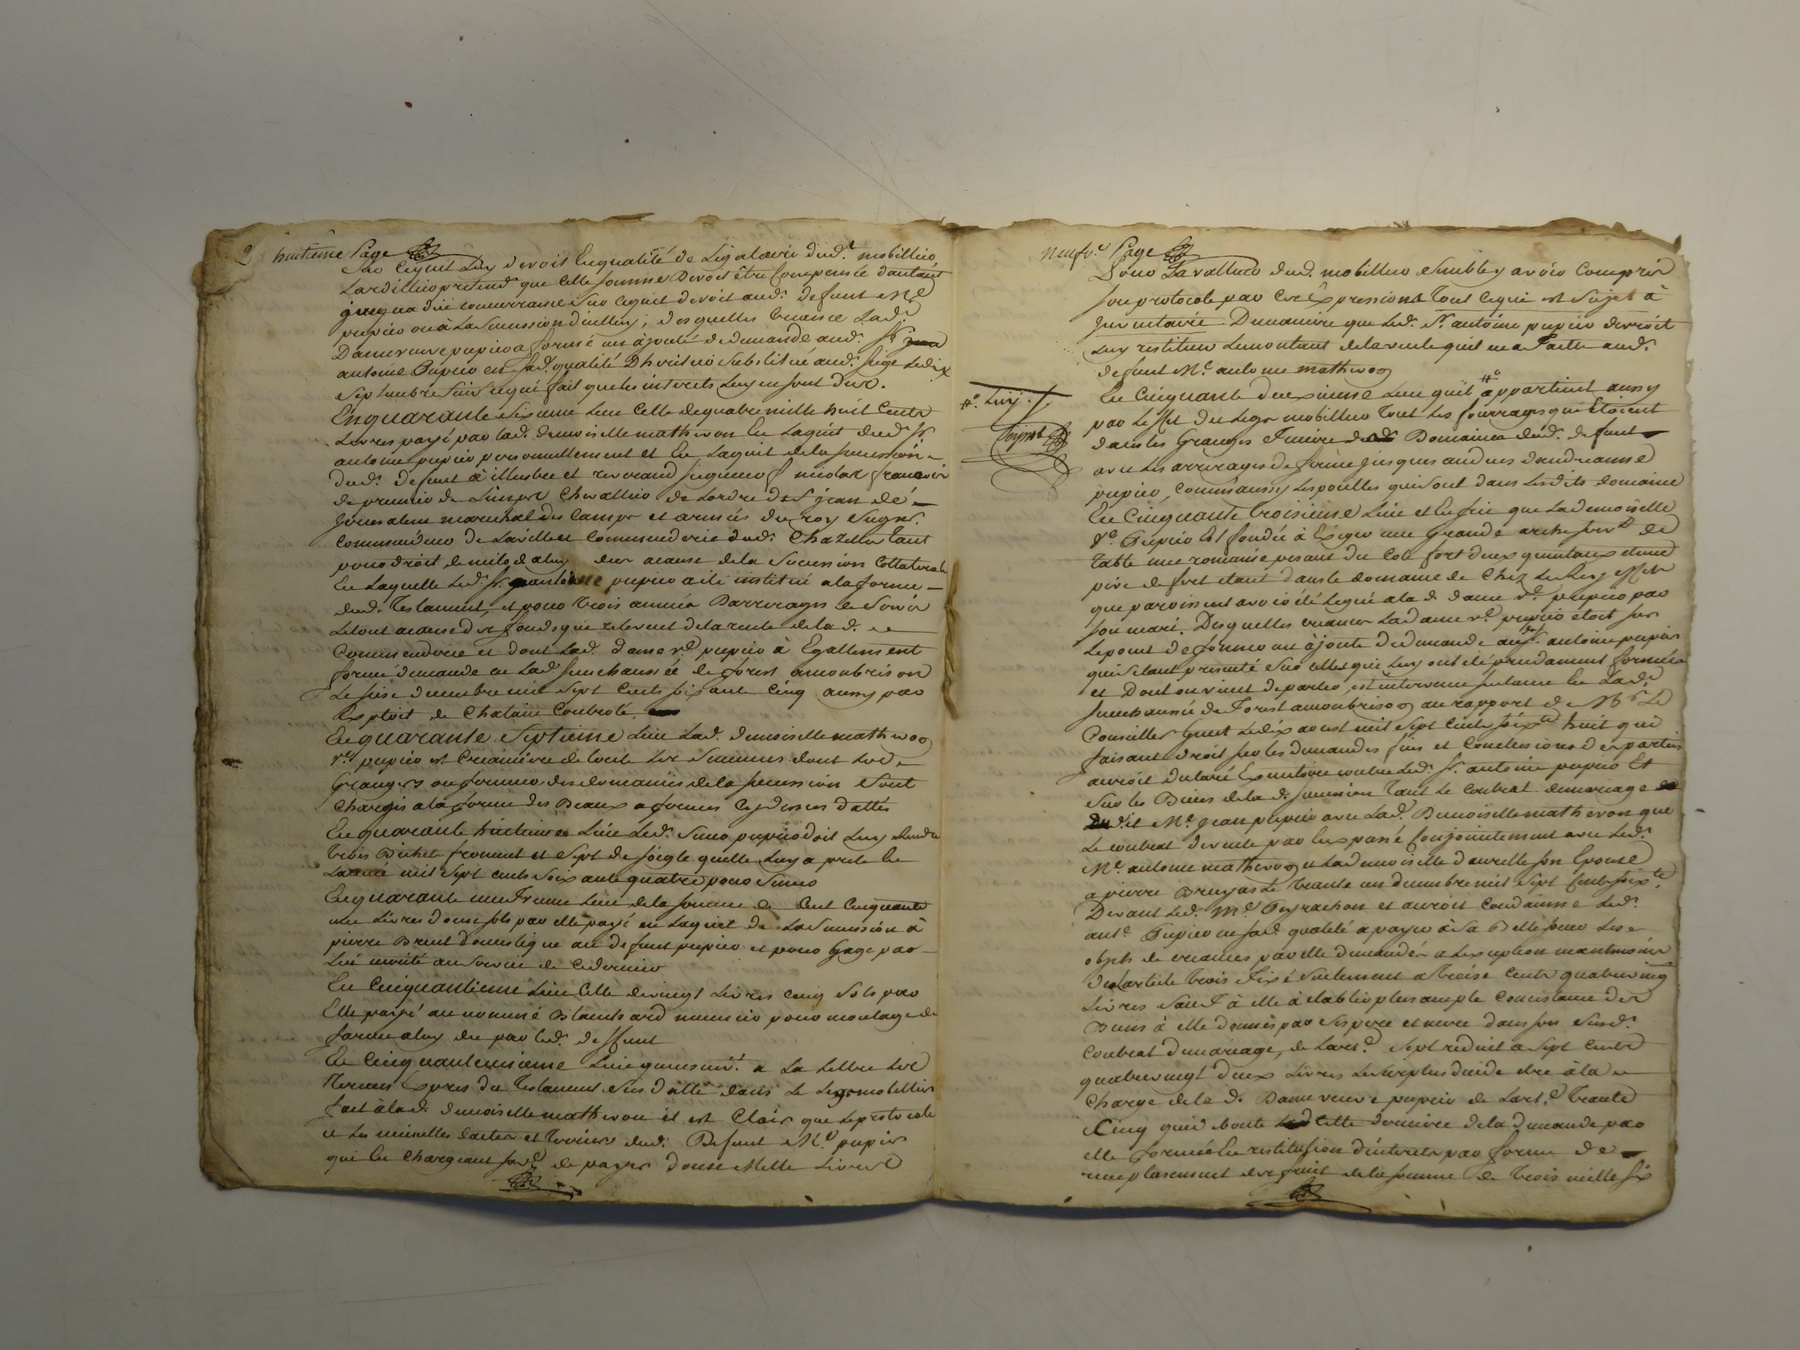 huitieme Page
Sur lequel luy devoit En qualité de Légataire dud. mobillier
Lardillier pretend que Cette somme Devoit être Compensée d'autant
jusqua due concurrance Sur lequel devoit aud. defunt Me
pupier ou à La Succession d'icelluy, desquelles Creance Lad.
Dame veuve pupier a formé un ajouté de demande aud. Sr
antoine Pupier en sad. qualité D'heritier substitué aud. siege Le dix
septembre suivant qui fait que les interets Luy en sont dus.
En quarante sixieme Lieu Celle de quatre mille huit Cents
Livres payé par lad. demoiselle mathevon En Laquit dud. Sr
antoine pupier personnellement et En Laquit de la succession
dud. defunt à illustre et reverend seigneur nicolas françois
de premier de Chevallier de Lordre de St jean de
jerusalem marechal des Camps et armées du roy Seigr.
Commandeur de Laville et Commanderie dud. Chazelles Tant
pour droit de milod a luy deu acause de la Succession Collaterale
En Laquelle led. Sr antoine pupier a été institué a la forme
dud. Testament, et pour trois années Darrerages de Servis
Le tout acause des fonds que relevent de la rente de lad.
Commanderie et dont Lad. dame ve. pupier à Egallement
formé demande en Lad. Senechaussée de forest a montbrison
Le seize decembre mil sept Cents soixante Cinq aussy par
Exploit de Chatain Controlé.
En quarante Septieme Lieu Lad. demoiselle mathevon
ve. pupier est Creanciere de toute les Sommes dont les
Grangers ou fermiers des domaines de la succession sont
Chargés a la forme des Beaux a fermes cy dessus dattés
En quarante huitieme Lieu Led. Sieur pupier doit Luy rendre
trois Bichet froment et Sept de soigle quelle Luy a preté En
Lannée mil Sept cents Soixante quatre pour Semer
En quarante neufvieme Lieu de la somme de Cent Cinquante
une Livres douse sols par elle payé en Laquit de La Succession à
pierre Brent domestique du defunt pupier et pour Gage par
Luy merité au Service de Ce dernier
En Cinquantieme Lieu Celle de vingt Livres cinq Sols par
Elle payé au nommé Blanchard meunier pour moutage de
farine a luy deu par led. deffunt
En Cinquanteunieme Lieu que suivt. a La Lettre les
termes Expres du Testament Sus datté dans Le Legs mobillier
fait à lad. demoiselle mathevon il est Clair que Le protocole
et Les minuttes dactes et Terriers dud. Defunt Me pupier
qui En Chargeant sad. de payer douse Mille Livres
neufve. Page
Pour La valleur dud. mobillier Semble y avoir Compris
son protocole par Ces Expressions Tout Ce qui est Sujet à
inventaire De maniere que Led. Sr. antoine pupier devroit
Luy restituer Le montant de la vente quil en a Faitte aud.
defunt Me antoine mathevon
En Cinquante deuxieme Lieu quil appartient aussy
par Leffet du Legs mobillier Tout Les fourrages qui Etoient
dans les Granges Domaines dud. defunt
avec Les arrerages de ferme jusques au deces dandreanne
pupier, Comme aussy Les poulles qui sont dans Lesdits domaine
En Cinquante troisieme Lieu et Enfin que La demoiselle
ve. Pupier Est fondée à Exiger une Grande arche
Table une romaine pesant du Cote fort deux quintaux
etant dans le domaine de Chez
que paroissent avoir été Legué a lad. dame ve. pupier par
son mari. Desquelles creances Lad. dame ve. pupier étoit sur
Le point de former un ajouté de demande aud. Sr. antoine pupier
qui setant presenté Sur celles qui Luy ont été precedament formée
et Dont on vient de parler, est intervenue sentance En Lad.
senechaussée de Forest a montbrison au rapport de Mr. Le
Conseiller Le dix aoust mil Sept Cents soixte. huit qui
faisant droit sur les demandes fins et Conclusions des parties
auroit declaré Executoire contre Led. Sr. antoine pupier Et
sur les Biens de la d. succession Tant Le Contrat de mariage
dudit Me. Jean pupier avec Lad. Demoiselle mathevon que
Le Contrat de vente par Eux passé Conjointement avec Led.
Me. antoine mathevon et La demoiselle daurelle son Epouse
a pierre Bruyas Le trante un decembre mil Sept Cents soixte.
Devant Led. Me. Peyrachon et auroit Condamné Led.
ant. Pupier en sad. qualité a payer à Sa Belle soeur Les
objets de creances par elle demandés a Lexeption neantmoins
de Larticle trois Fixé Seulement a Treize Cents quatrevingt
Livres Sauf à elle à etablir plus ample Consistance des
Biens à elle donnés par Ses pere et mere dans son Susd.
Contrat de mariage, de Lart. Sept reduit a Sept Cents
quatrevingt deux Livres Le surplus devant etre à la
Charge de la d. Dame veuve pupier de Lart. trante
Cinq quid boute Cette derniere de la demande par
elle formée En restitution d'interets par forme de
remplacement des fruits de la somme de trois mille six